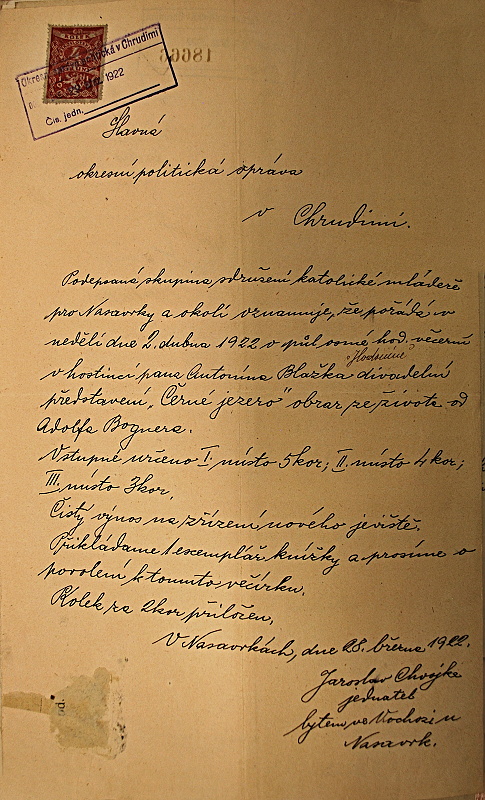 KOLEK
18666
Okresní politická v Chrudimi
1922
Čís. jedn.
Slavná
okresní politická správa
v Chrudimi.
Podepsaná skupina sdružení katolické mládeže
pro Nasavrky a okolí oznamuje, že pořádá v
neděli dne 2. dubna 1922 o půl osmé hod. večerní
v hostinci pana Antonína Blažka divadelní
představení „Černé jezero" obraz ze života od
Adolfa Bognera.
Vstupné určeno I. místo 5 kor; II. místo 4 kor;
III. místo 3 kor.
Čistý výnos na zřízení nového jeviště.
Přikládáme 1 exemplář knížky a prosíme o
povolení k tomuto večírku.
Kolek za 2 kor přiložen.
V Nasavrkách, dne 28. března 1922.
Jaroslav Chvojka
jednatel
bytem ve Vochozi u
Nasavrk.
od.